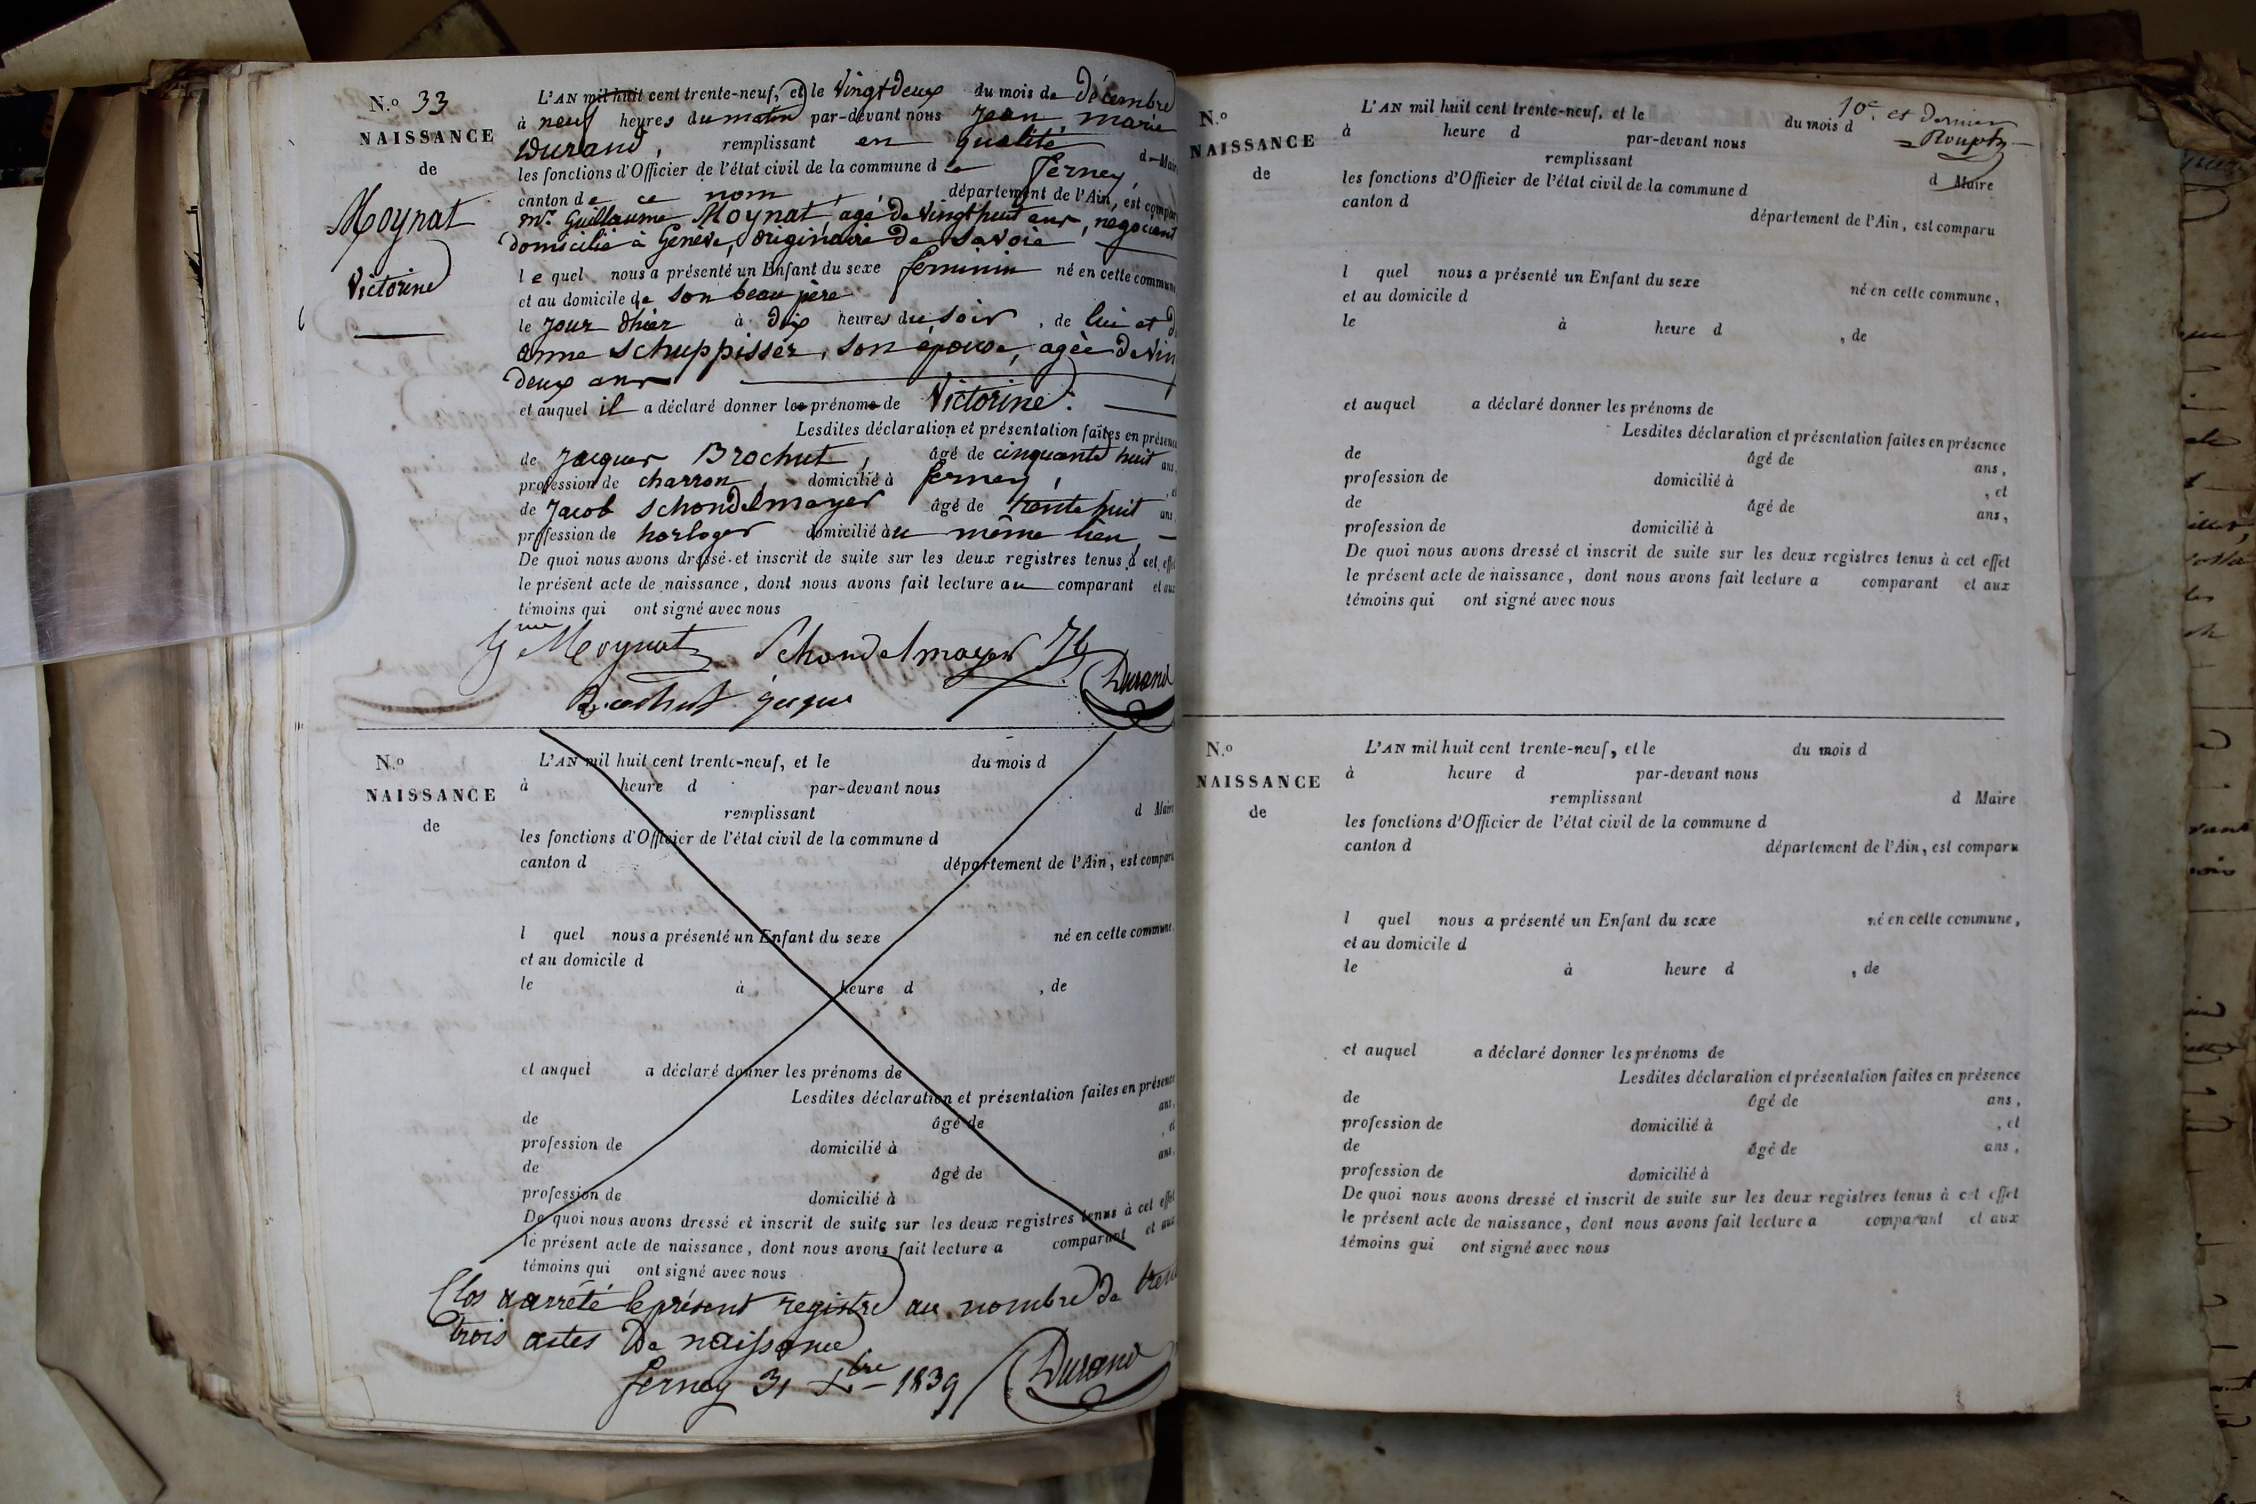 N.º 33
NAISSANCE
de
Moynat
Victorine
L'AN mil huit cent trente-neuf, et le vingt deux du mois de décembre
à neuf heures du matin par-devant nous Jean marie
Durand, remplissant en qualité d Maire
les fonctions d'Officier de l'état civil de la commune de ferney,
canton de ce nom, département de l'Ain, est comparu
mr. Guillaume Moynat, agé de vingt huit ans, négociant
domicilié à Genève, originaire de Savoie
le quel nous a présenté un Enfant du sexe feminin né en cette commune
et au domicile de son beau père
le jour d'hier à dix heures du soir, de lui et d
anne Schuppisser, son épouse, agée de vin
deux ans
et auquel il a déclaré donner les prénoms de Victorine.
Lesdites déclaration et présentation faites en présence
de Jacques Brochut, âgé de cinquante huit ans,
profession de charron, domicilié à ferney, , et
de Jacob Schondelmayer âgé de trente huit ans
profession de horloger domicilié au même lieu,
De quoi nous avons dressé et inscrit de suite sur les deux registres tenus à cet effet
le présent acte de naissance, dont nous avons fait lecture au comparant et aux
témoins qui ont signé avec nous
Gme Moynat Schondelmayer
Brochut jaque Durand
N.º
NAISSANCE
de
L'AN mil huit cent trente-neuf, et le du mois d
à heure d par-devant nous
remplissant d Maire
les fonctions d'Officier de l'état civil de la commune d
canton d département de l'Ain, est comparu
l quel nous a présenté un Enfant du sexe né en cette commune,
et au domicile d
le à heure d , de
et auquel a déclaré donner les prénoms de
Lesdites déclaration et présentation faites en présence
de âgé de ans,
profession de domicilié à , et
de âgé de ans,
profession de domicilié à
De quoi nous avons dressé et inscrit de suite sur les deux registres tenus à cet effet
le présent acte de naissance, dont nous avons fait lecture a comparant et aux
témoins qui ont signé avec nous
Clos & arrêté le présent registre au nombre de trente
trois actes de naissance
ferney 31 Xbre 1839 Durand
10e. et dernier
N.º
NAISSANCE
de
L'AN mil huit cent trente-neuf, et le du mois d
à heure d par-devant nous
remplissant d Maire
les fonctions d'Officier de l'état civil de la commune d
canton d département de l'Ain, est comparu
l quel nous a présenté un Enfant du sexe né en cette commune,
et au domicile d
le à heure d , de
et auquel a déclaré donner les prénoms de
Lesdites déclaration et présentation faites en présence
de âgé de ans,
profession de domicilié à , et
de âgé de ans,
profession de domicilié à
De quoi nous avons dressé et inscrit de suite sur les deux registres tenus à cet effet
le présent acte de naissance, dont nous avons fait lecture a comparant et aux
témoins qui ont signé avec nous
N.º
NAISSANCE
de
L'AN mil huit cent trente-neuf, et le du mois d
à heure d par-devant nous
remplissant d Maire
les fonctions d'Officier de l'état civil de la commune d
canton d département de l'Ain, est comparu
l quel nous a présenté un Enfant du sexe né en cette commune,
et au domicile d
le à heure d , de
et auquel a déclaré donner les prénoms de
Lesdites déclaration et présentation faites en présence
de âgé de ans,
profession de domicilié à , et
de âgé de ans,
profession de domicilié à
De quoi nous avons dressé et inscrit de suite sur les deux registres tenus à cet effet
le présent acte de naissance, dont nous avons fait lecture a comparant et aux
témoins qui ont signé avec nous